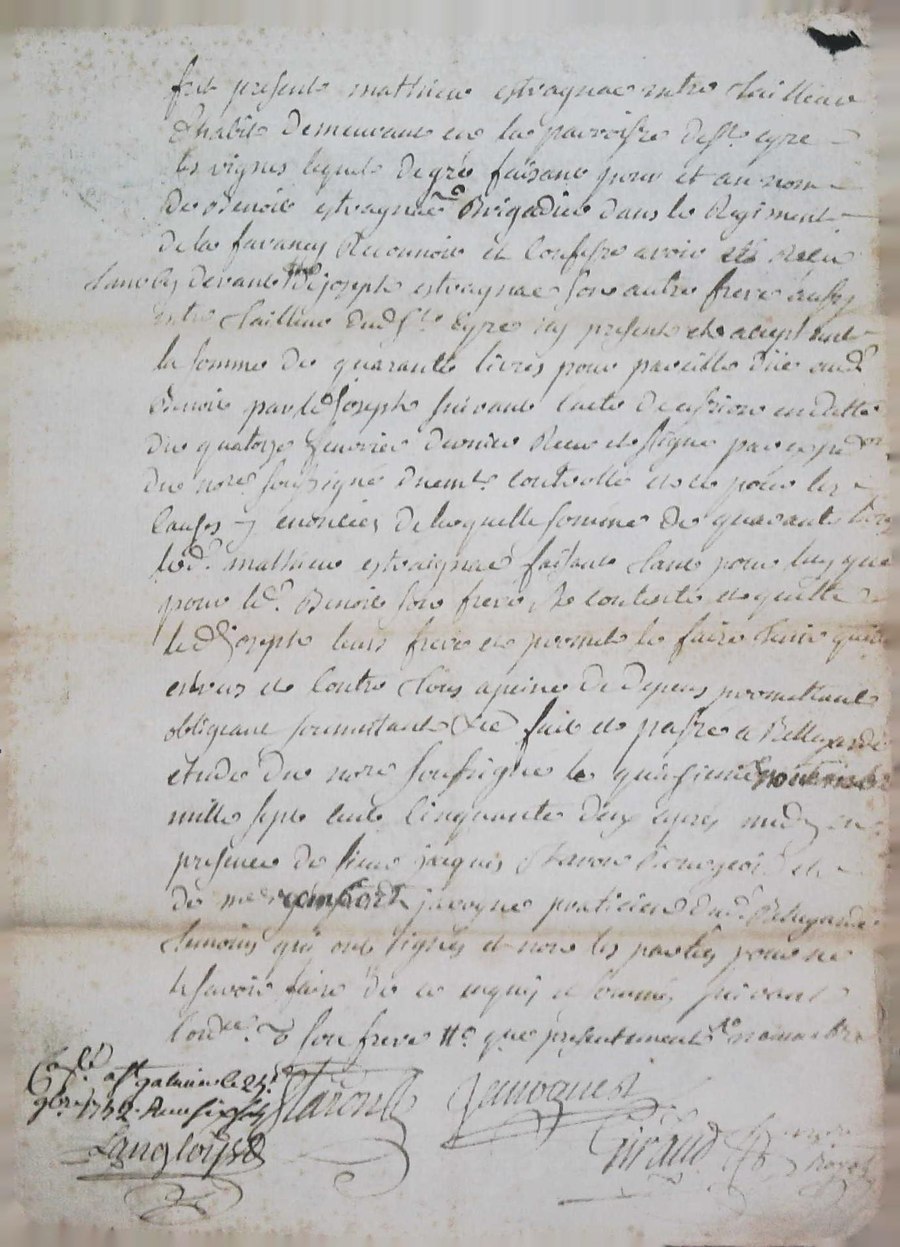 fut présent mathieu estragnac mtre tailleur
d'habits demeurant en la parroisse de St. cyre
les vignes lequel de gré faisant pour et au nom
de Benoit estragnac Brigadier dans le Regiment
de la Reconnoit et Confesse avoir été Receu
tant cy devant de joseph estragnac son autre frere aussy
mtre tailleur dud St. Cyre icy present et acceptant
la somme de quarante livres pour pareille düe aud.
Benoit par led Joseph suivant l'acte de cession en datte
du quatorze Janvier dernier Receu et signé par expedon
du nore. soussigné duemt. controllé et ce pour les
Causes y enoncées de laquelle somme de quarante livres
led. mathieu estraignac faisant tant pour luy que
pour led. Benoit son frere, se contente et quitte
led Joseph leurs frere et promet le faire tenir quitte
envers et Contre tous a peine de depens promettant
obligeant soumettant &ca fait et passé a Bellegarde
étude du nore soussigné le quinsieme novembre
mille sept cent Cinquante deux apres midy en
presence de sieur jacques Bourgeois et
de me. javogue praticien dud. Bellegarde
temoins qui ont signés et non les parties pour ne
le savoir faire de ce enquis et sommés suivant
l'ordce. son frere que présentement
Collé. a St galmier le 24e.
9bre 1752. Receu six sols
Langlois
Staron
Javogues
Giraud